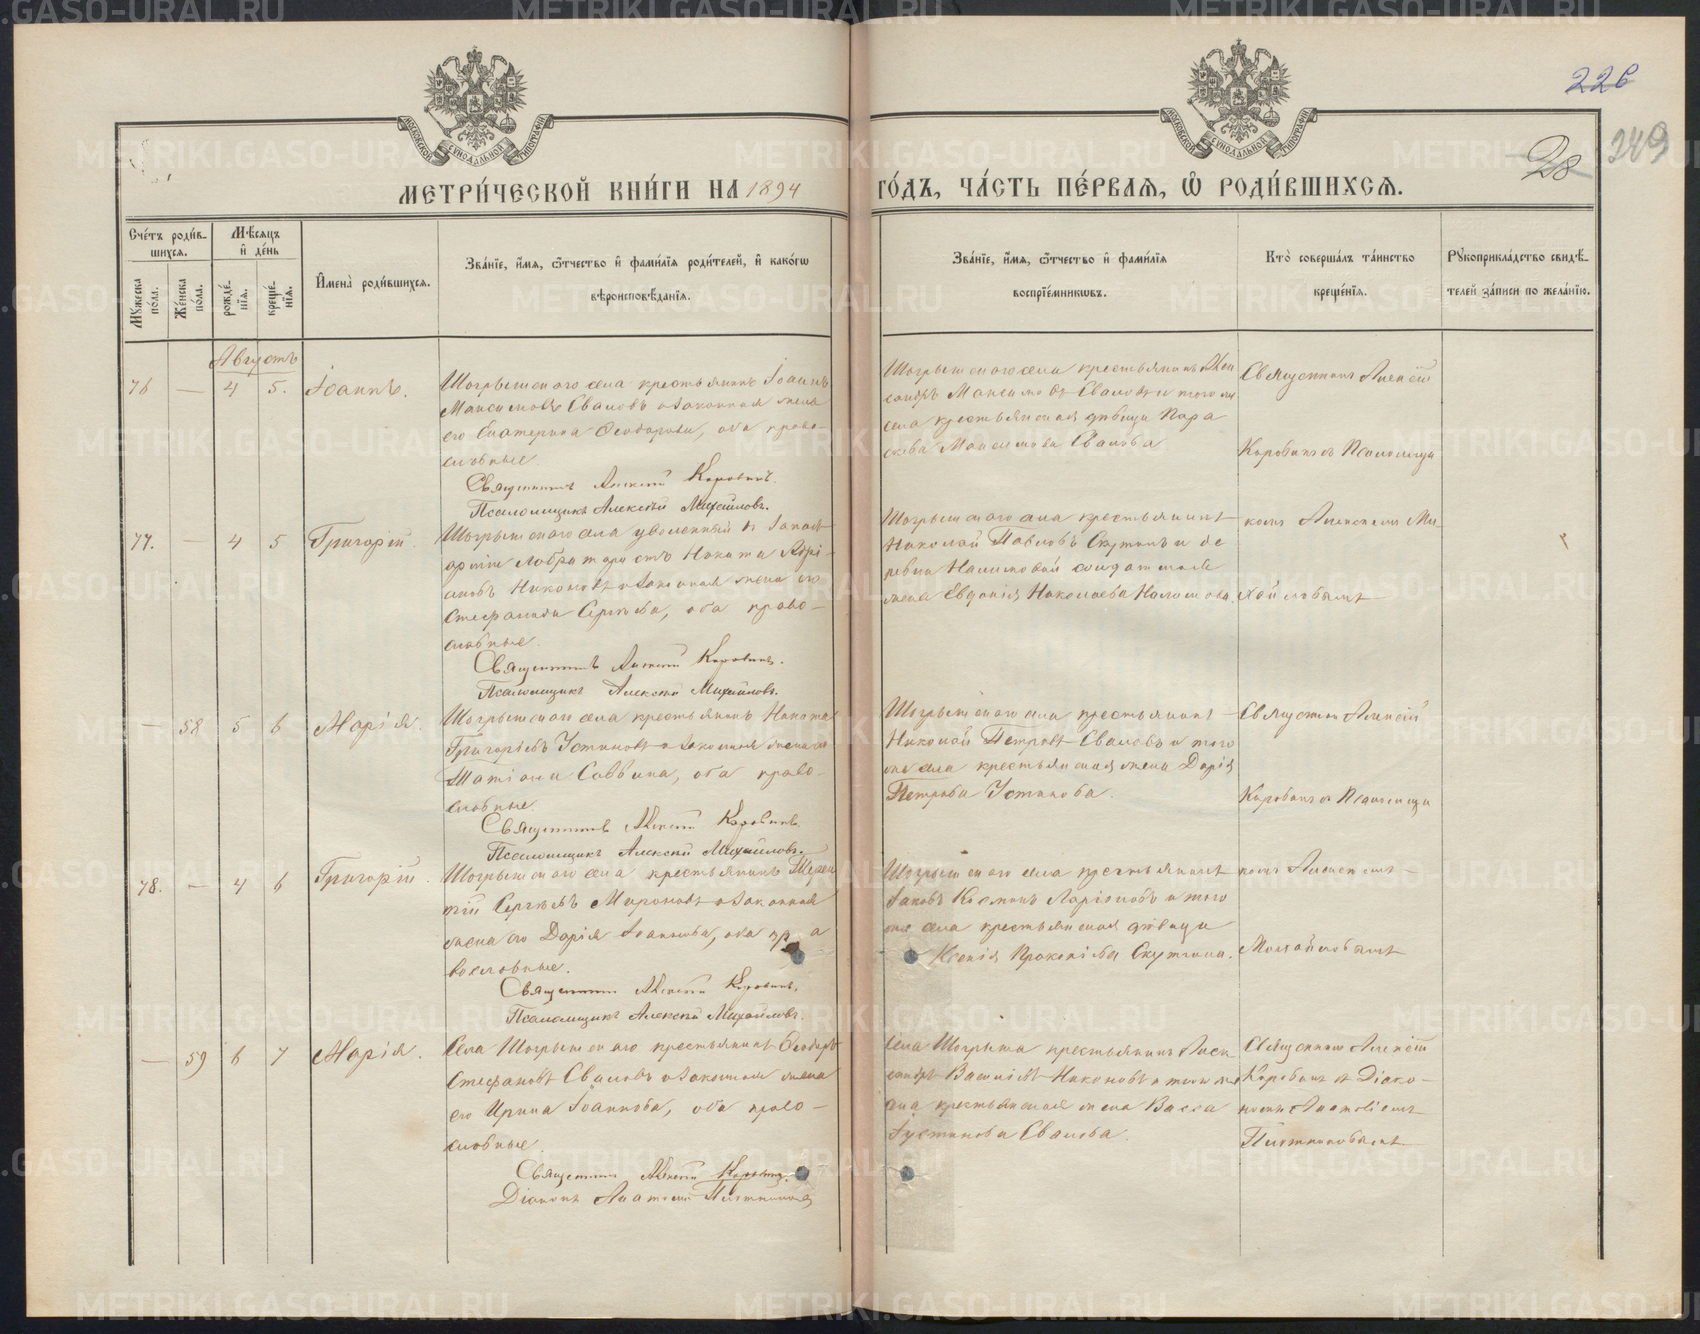 226
249
28
МОСКОВСКОЙ СѴНОДАЛЬНОЙ ТИПОГРАФІИ
МОСКОВСКОЙ СѴНОДАЛЬНОЙ ТИПОГРАФІИ
МЕТРИ́ЧЕСКОЙ КНИ́ГИ НА 1894 ГО́ДЪ, ЧА́СТЬ ПЕ́РВАЯ, Ѡ РОДИ́ВШИХСЯ.
Сче́тъ роди́в-
шихся.
Мѣ́сяцъ
и де́нь
Мꙋжеска по́ла.
Же́нска по́ла.
рожде́нїя.
креще́нїя.
И҆мена̀ роди́вшихся.
Зва́нїе, и҆́мя, ѻ҆́тчество и҆ фами́лїя роди́телей, и҆ како́гѡ
вѣроисповѣ́данїя.
Зва́нїе, и҆́мя, ѻ҆́тчество и҆ фами́лїя
воспрїе́мникѡвъ.
Кто̀ соверша́лъ та́инство
креще́нїя.
Рꙋкоприкла́дство свидѣ́-
телей за́писи по жела́нїю.
Августъ
76 — 4 5. Іоаннъ.
Шогрышскаго села крестьянинъ Іоаннъ
Максимовъ Сваловъ и законная жена
его Екатерина Ѳеодорова, оба право-
славные.
Священникъ Алексій Коровинъ.
Псаломщикъ Алексѣй Михайловъ.
Шогрышскаго села крестьянинъ Алек
сандръ Максимовъ Сваловъ и того же
села крестьянская дѣвица Пара
скева Максимова Свалова
Священникъ Алексій
Коровинъ съ Псаломщи
77. — 4 5 Григорій.
Шогрышскаго села уволенный въ запасъ
арміи Никита
Никоновъ и законная жена его
Стефанида Сергѣева, оба право-
славные.
Священникъ Алексій Коровинъ.
Псаломщикъ Алексій Михайловъ.
Шогрышскаго села крестьянинъ
Николай Павловъ Скутинъ и де
ревни солдатская
жена Евдокія Николаева
комъ Алексѣемъ Ми-
хайловымъ
— 58 5 6 Марія.
Шогрышскаго села крестьянинъ Никита
Григорьевъ Устиновъ и законная жена его
Татіана Саввина, оба право-
славные
Священникъ Алексій Коровинъ.
Псаломщикъ Алексій Михайловъ.
Шогрышскаго села крестьянинъ
Николай Петровъ Сваловъ и того
же села крестьянская жена Дарія
Петрова Устинова.
Священникъ Алексій
Коровинъ съ Псаломщи
78. — 4 6 Григорій.
Шогрышскаго села крестьянинъ Терен
тій Сергѣевъ Мироновъ и законная
жена его Дарія Іоаннова, оба пра
вославные.
Священникъ Алексій Коровинъ.
Псаломщикъ Алексій Михайловъ.
Шогрышскаго села крестьянинъ
Іаковъ Косминъ Ларіоновъ и того
же села крестьянская дѣвица
Ксенія Прокопіева Скутина.
комъ Алексѣемъ
Михайловымъ
— 59 6 7 Марія.
Села Шогрышскаго крестьянинъ Ѳеодоръ
Стефановъ Сваловъ и законная жена
его Ирина Іоаннова, оба право-
славные.
Священникъ Алексій Коровинъ.
Діаконъ Анатолій Плотниковъ
Села Шогрыша крестьянинъ Алек
сандръ Василіевъ Никоновъ и того же
села крестьянская жена Васса
Іустинова Свалова.
Священникъ Алексій
Коровинъ съ Діако-
номъ Анатоліемъ
Плотниковымъ
METRIKI.GASO-URAL.RU